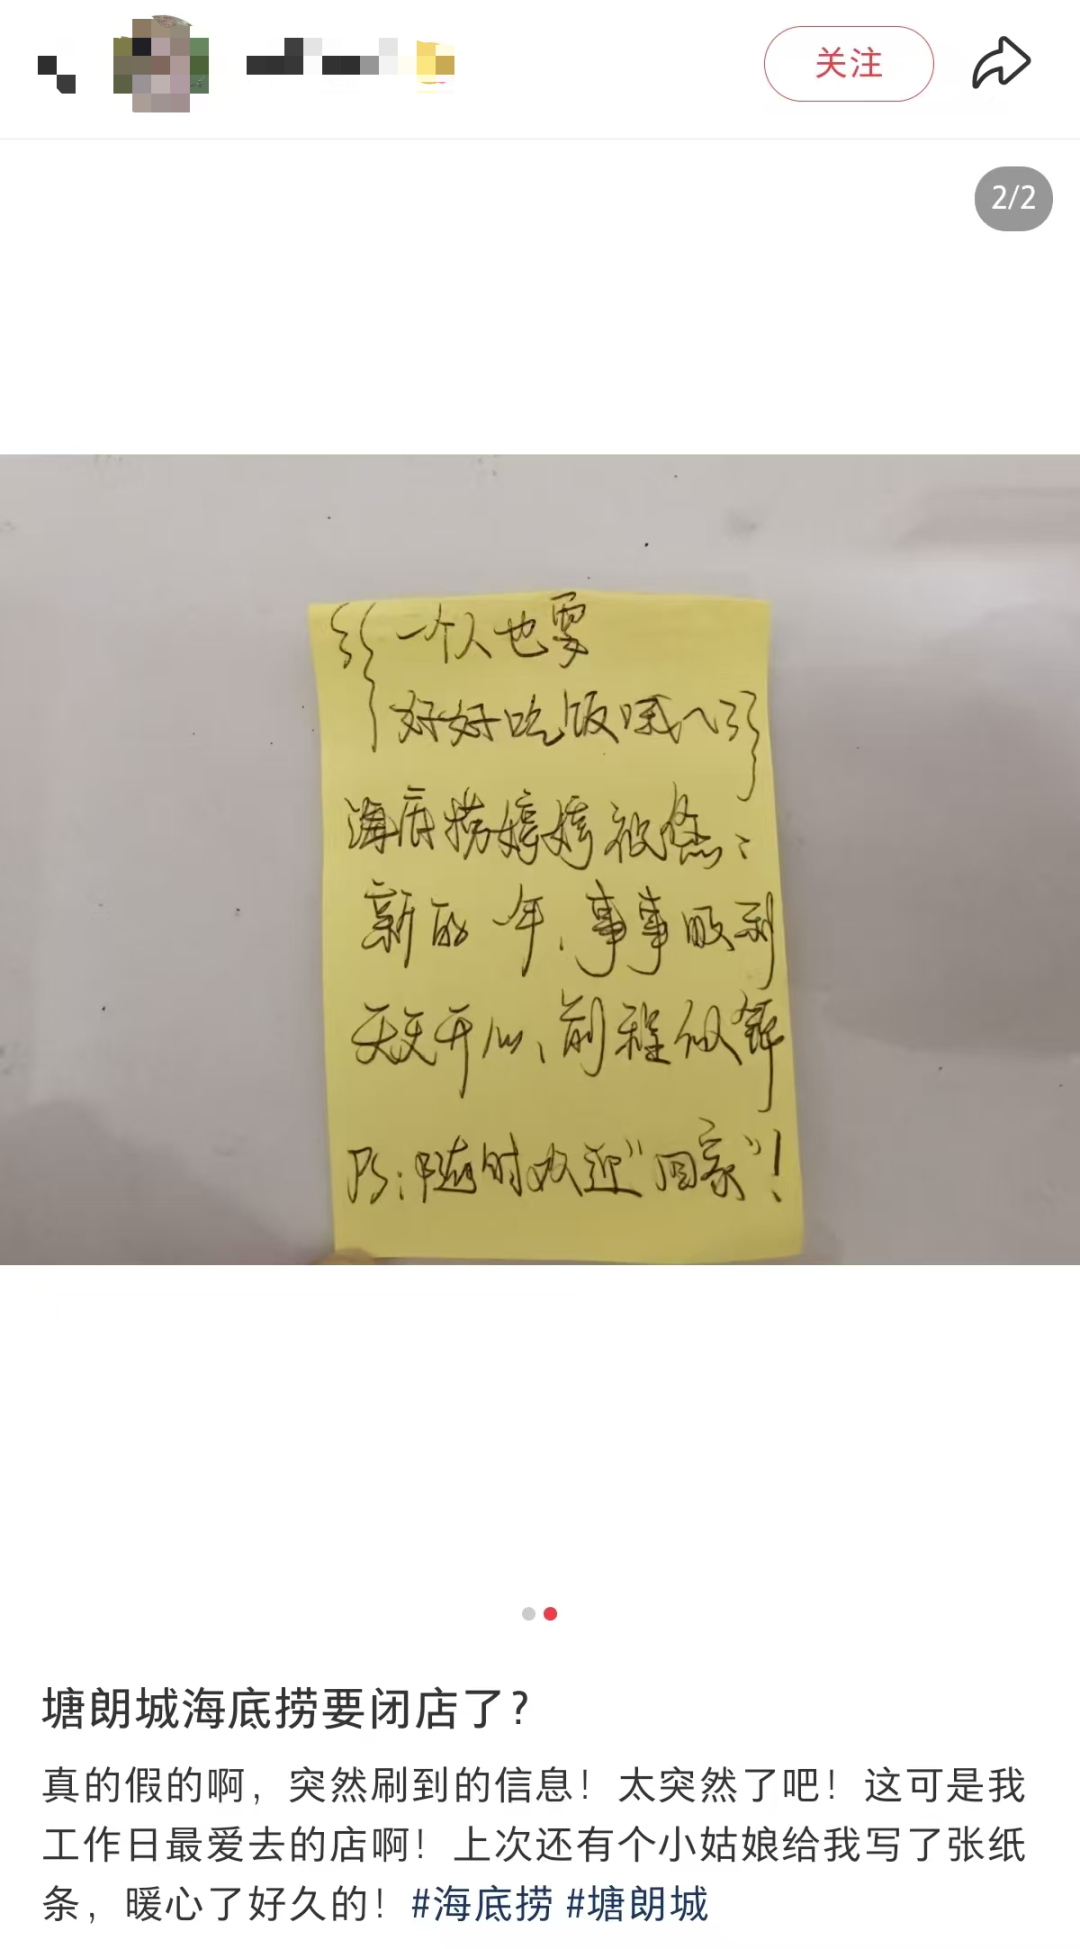 关注
2/2
一个人也要
好好吃饭哦~
海底捞婷婷祝您:
新的一年、事事顺利
天天开心、前程似锦
PS:随时欢迎“回家”!
塘朗城海底捞要闭店了?
真的假的啊，突然刷到的信息！太突然了吧！这可是我
工作日最爱去的店啊！上次还有个小姑娘给我写了张纸
条，暖心了好久的！#海底捞 #塘朗城